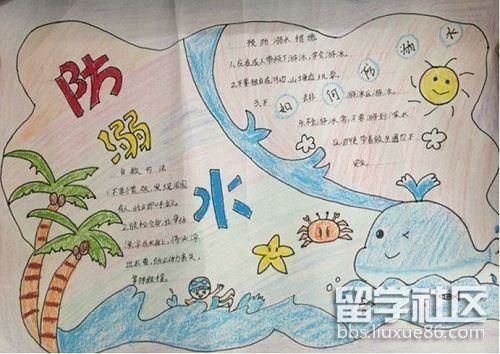 防
溺
水
预防溺水措施
1.应在成人带领下游泳,学会游泳。
2.不要独自在河边、山塘边玩耍。
3.不去非游泳区游泳。
4.不会游泳者,不要游到深水
区,即使带着救生圈也不
安全。
如何防溺水
自救方法
1.不要心慌,发现周围
有人时立即呼救。
2.放松全身,让身体
漂浮在水面上,将头浮
出水面,防止体力丧失,
等待救援。
留学社区
bbs.liuxue86.com